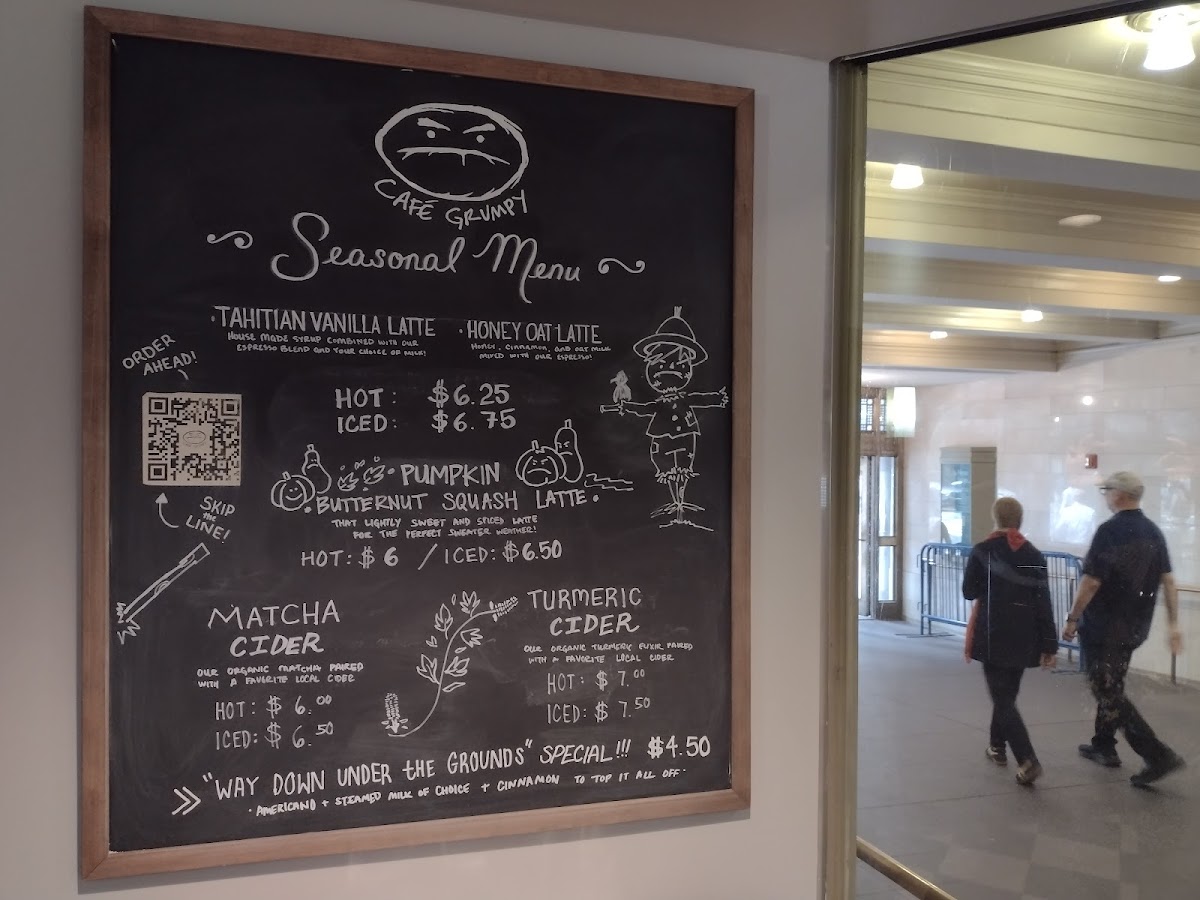 CAFÉ GRUMPY
Seasonal Menu
·TAHITIAN VANILLA LATTE
HOUSE MADE SYRUP COMBINED WITH OUR
ESPRESSO BLEND AND YOUR CHOICE OF MILK!
·HONEY OAT LATTE
HONEY, CINNAMON, AND OAT MILK
MIXED WITH OUR ESPRESSO!
ORDER
AHEAD!
HOT: $6.25
ICED: $6.75
SKIP
the
LINE!
·PUMPKIN
·BUTTERNUT SQUASH LATTE·
THAT LIGHTLY SWEET AND SPICED LATTE
FOR THE PERFECT SWEATER WEATHER!
HOT: $6 / ICED: $6.50
MATCHA
CIDER
OUR ORGANIC MATCHA PAIRED
WITH A FAVORITE LOCAL CIDER
HOT: $6.00
ICED: $6.50
TURMERIC
CIDER
OUR ORGANIC TURMERIC ELIXIR PAIRED
WITH A FAVORITE LOCAL CIDER
HOT: $7.00
ICED: $7.50
"WAY DOWN UNDER tHE GROUNDS" SPECIAL!!! $4.50
·AMERICANO + STEAMED MILK OF CHOICE + CINNAMON TO TOP IT ALL OFF·